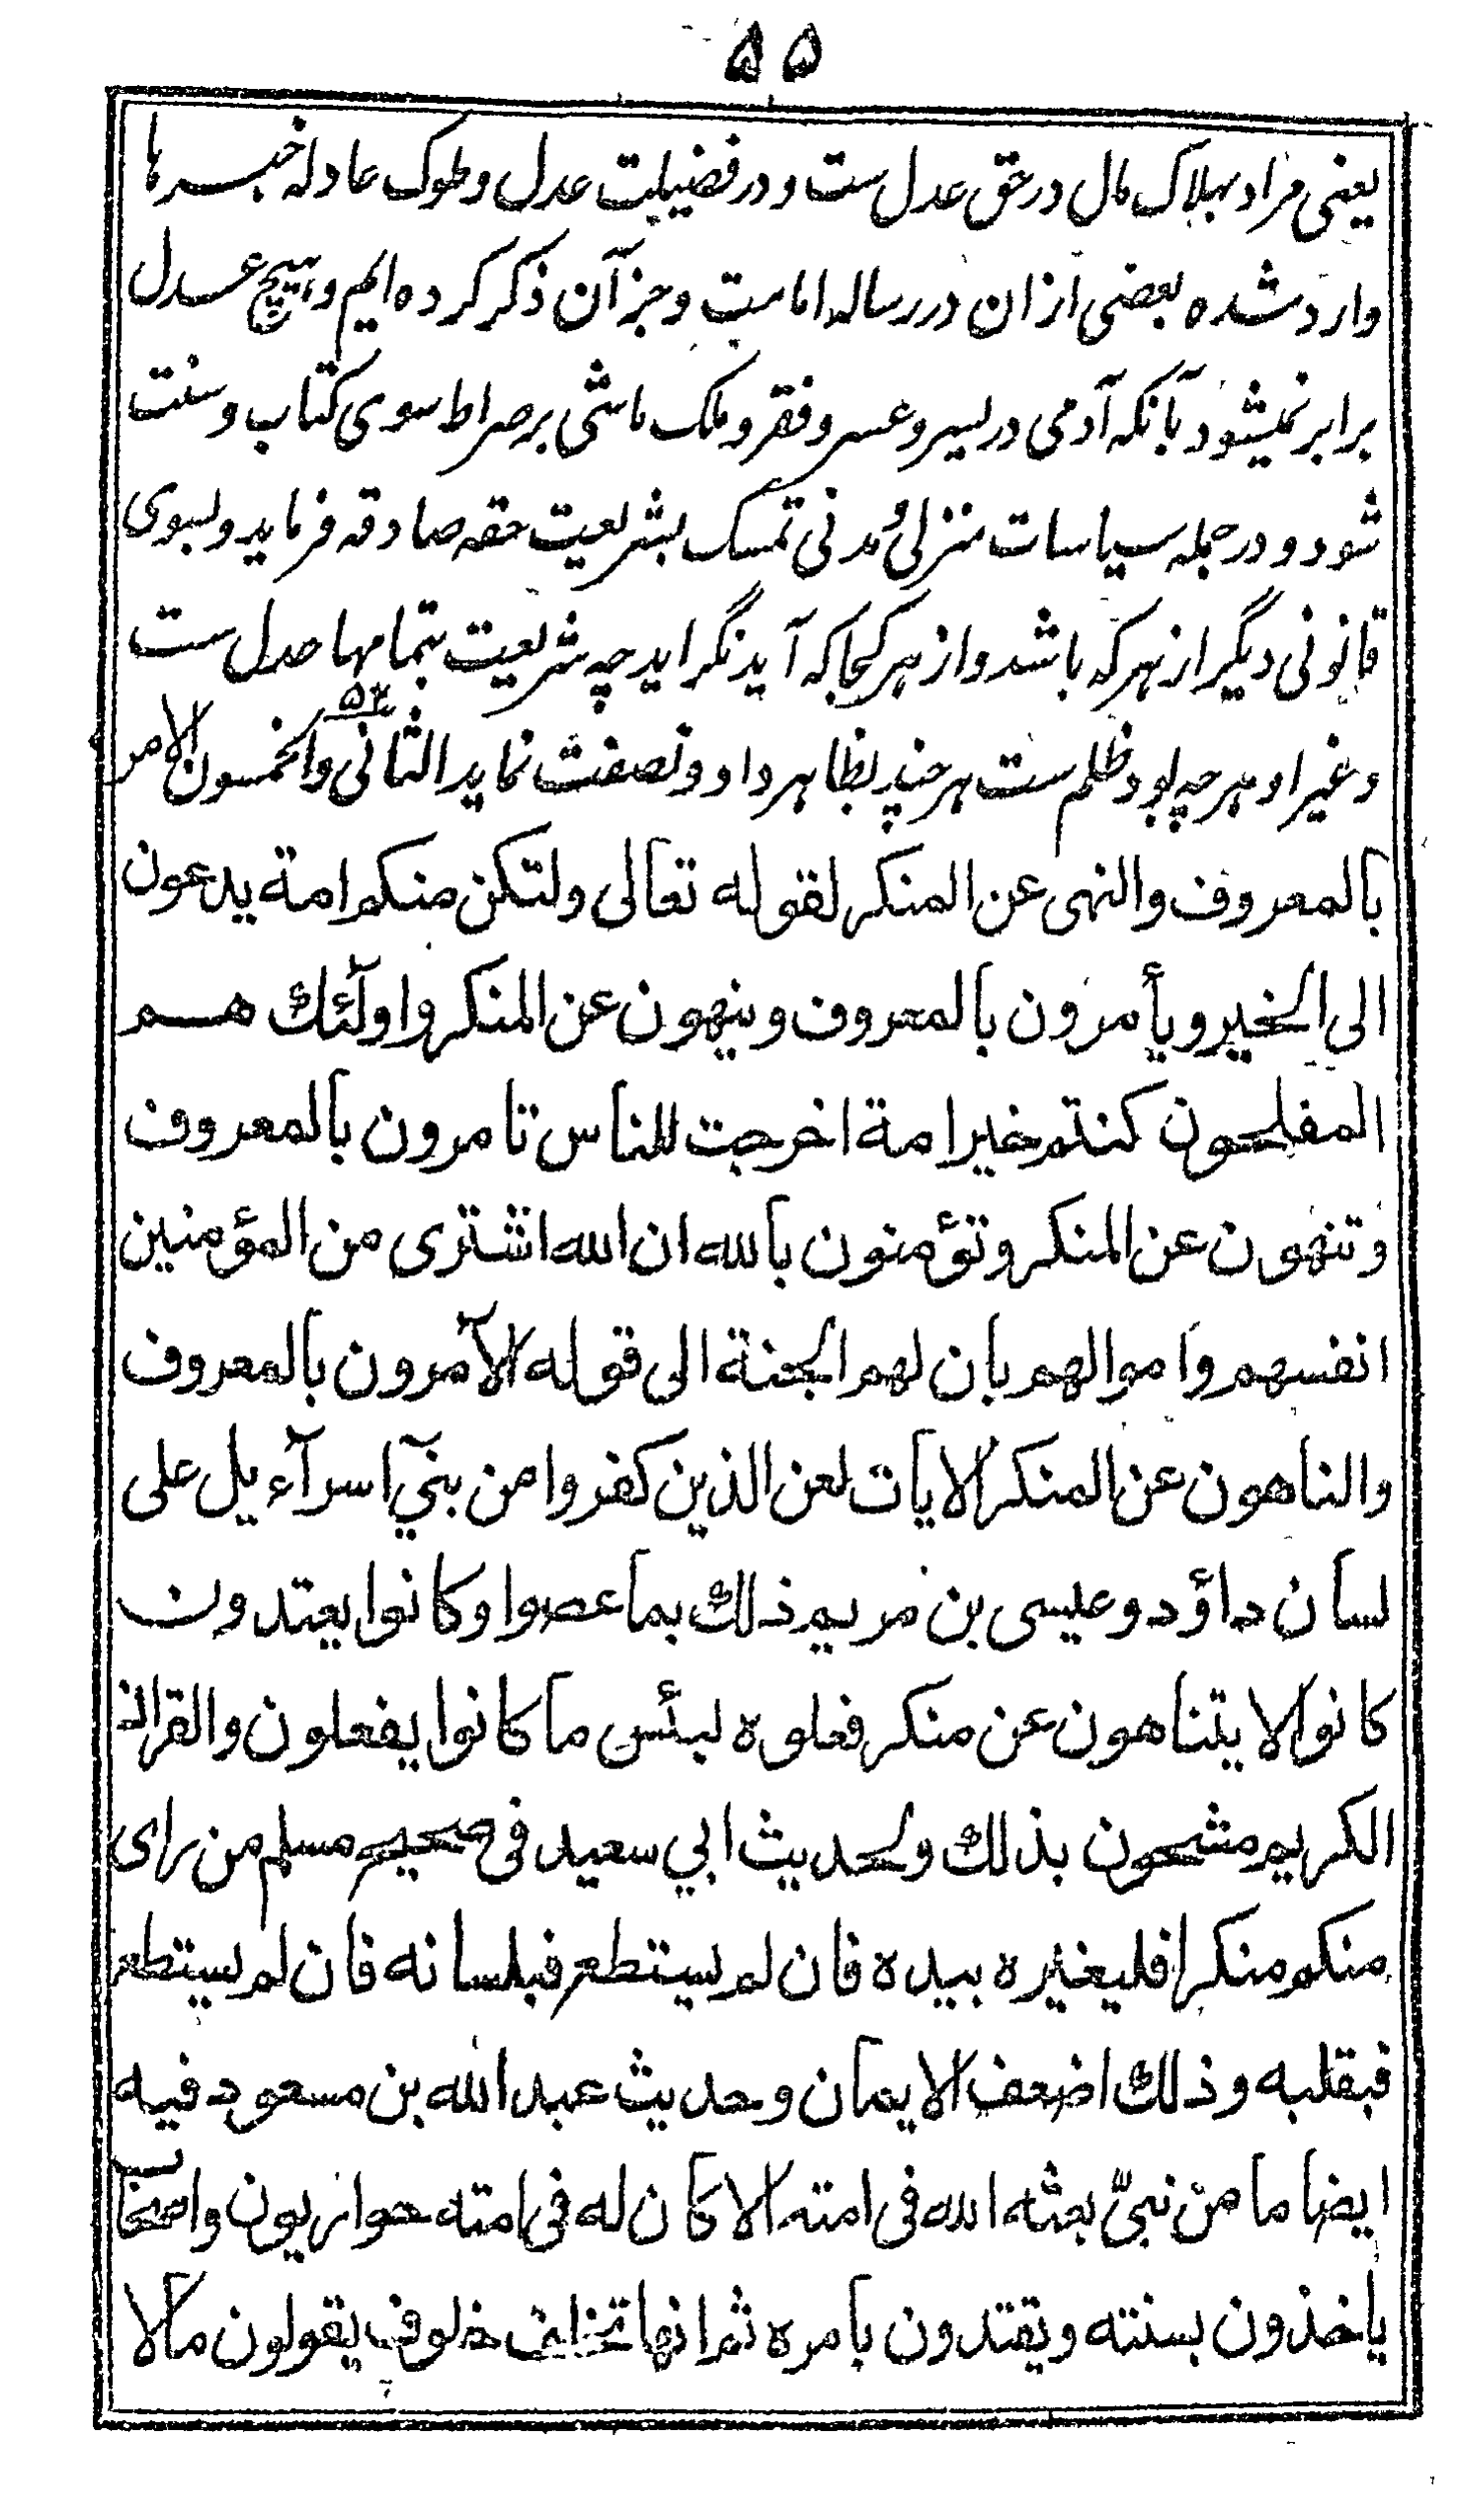 ۵۵
یعنی مراد بہلاک مال در حق عدل ست و در فضیلت عدل و ملوک عادلہ خبرہا
وارد شدہ بعضی ازان در رسالہ امامت و جز آن ذکر کردہ ایم و ہیچ عدل
برابر نمیشود بآنکہ آدمی در یسر و عسر و فقر و ملک ماشی بر صراط سوی کتاب و سنت
شود و در جملہ سیاسات منزلی و مدنی تمسک بشریعت حقہ صادقہ فرماید و بسوی
قانونی دیگر از ہر کہ باشد و از ہر کجا کہ آید نگراید چہ شریعت بتمامہا عدل ست
و غیر او ہر چہ بود ظلم ست ہر چند بظاہر داد و نصفت نماید الثانی والخمسون الامر
۵۲
بالمعروف والنهی عن المنکر لقوله تعالی ولتکن منکم امة یدعون
الی الخیر ویأمرون بالمعروف وینهون عن المنکر واولٓئك هم
المفلحون کنتم خیر امة اخرجت للناس تامرون بالمعروف
وتنهون عن المنکر وتؤمنون بالله ان الله اشتری من المؤمنین
انفسهم واموالهم بان لهم الجنة الی قوله الآمرون بالمعروف
والناهون عن المنکر الایات لعن الذین کفروا من بنیٓ اسرآءیل علی
لسان داؤد وعیسی بن مریم ذلك بما عصوا وکانوا یعتدون
کانوا لا یتناهون عن منکر فعلوه لبئس ما کانوا یفعلون والقران
الکریم مشحون بذلك ولحدیث ابی سعید فی صحیح مسلم من رای
منکم منکرا فلیغیره بیده فان لم یستطع فبلسانه فان لم یستطع
فبقلبه وذلك اضعف الایمان وحدیث عبد الله بن مسعود فیه
ایضا ما من نبیّ بعثه الله فی امته الا کان له فی امته حواریون واصحاب
یاخذون بسنته ویقتدون بامره ثم انها تخلف خلوف یقولون مالا